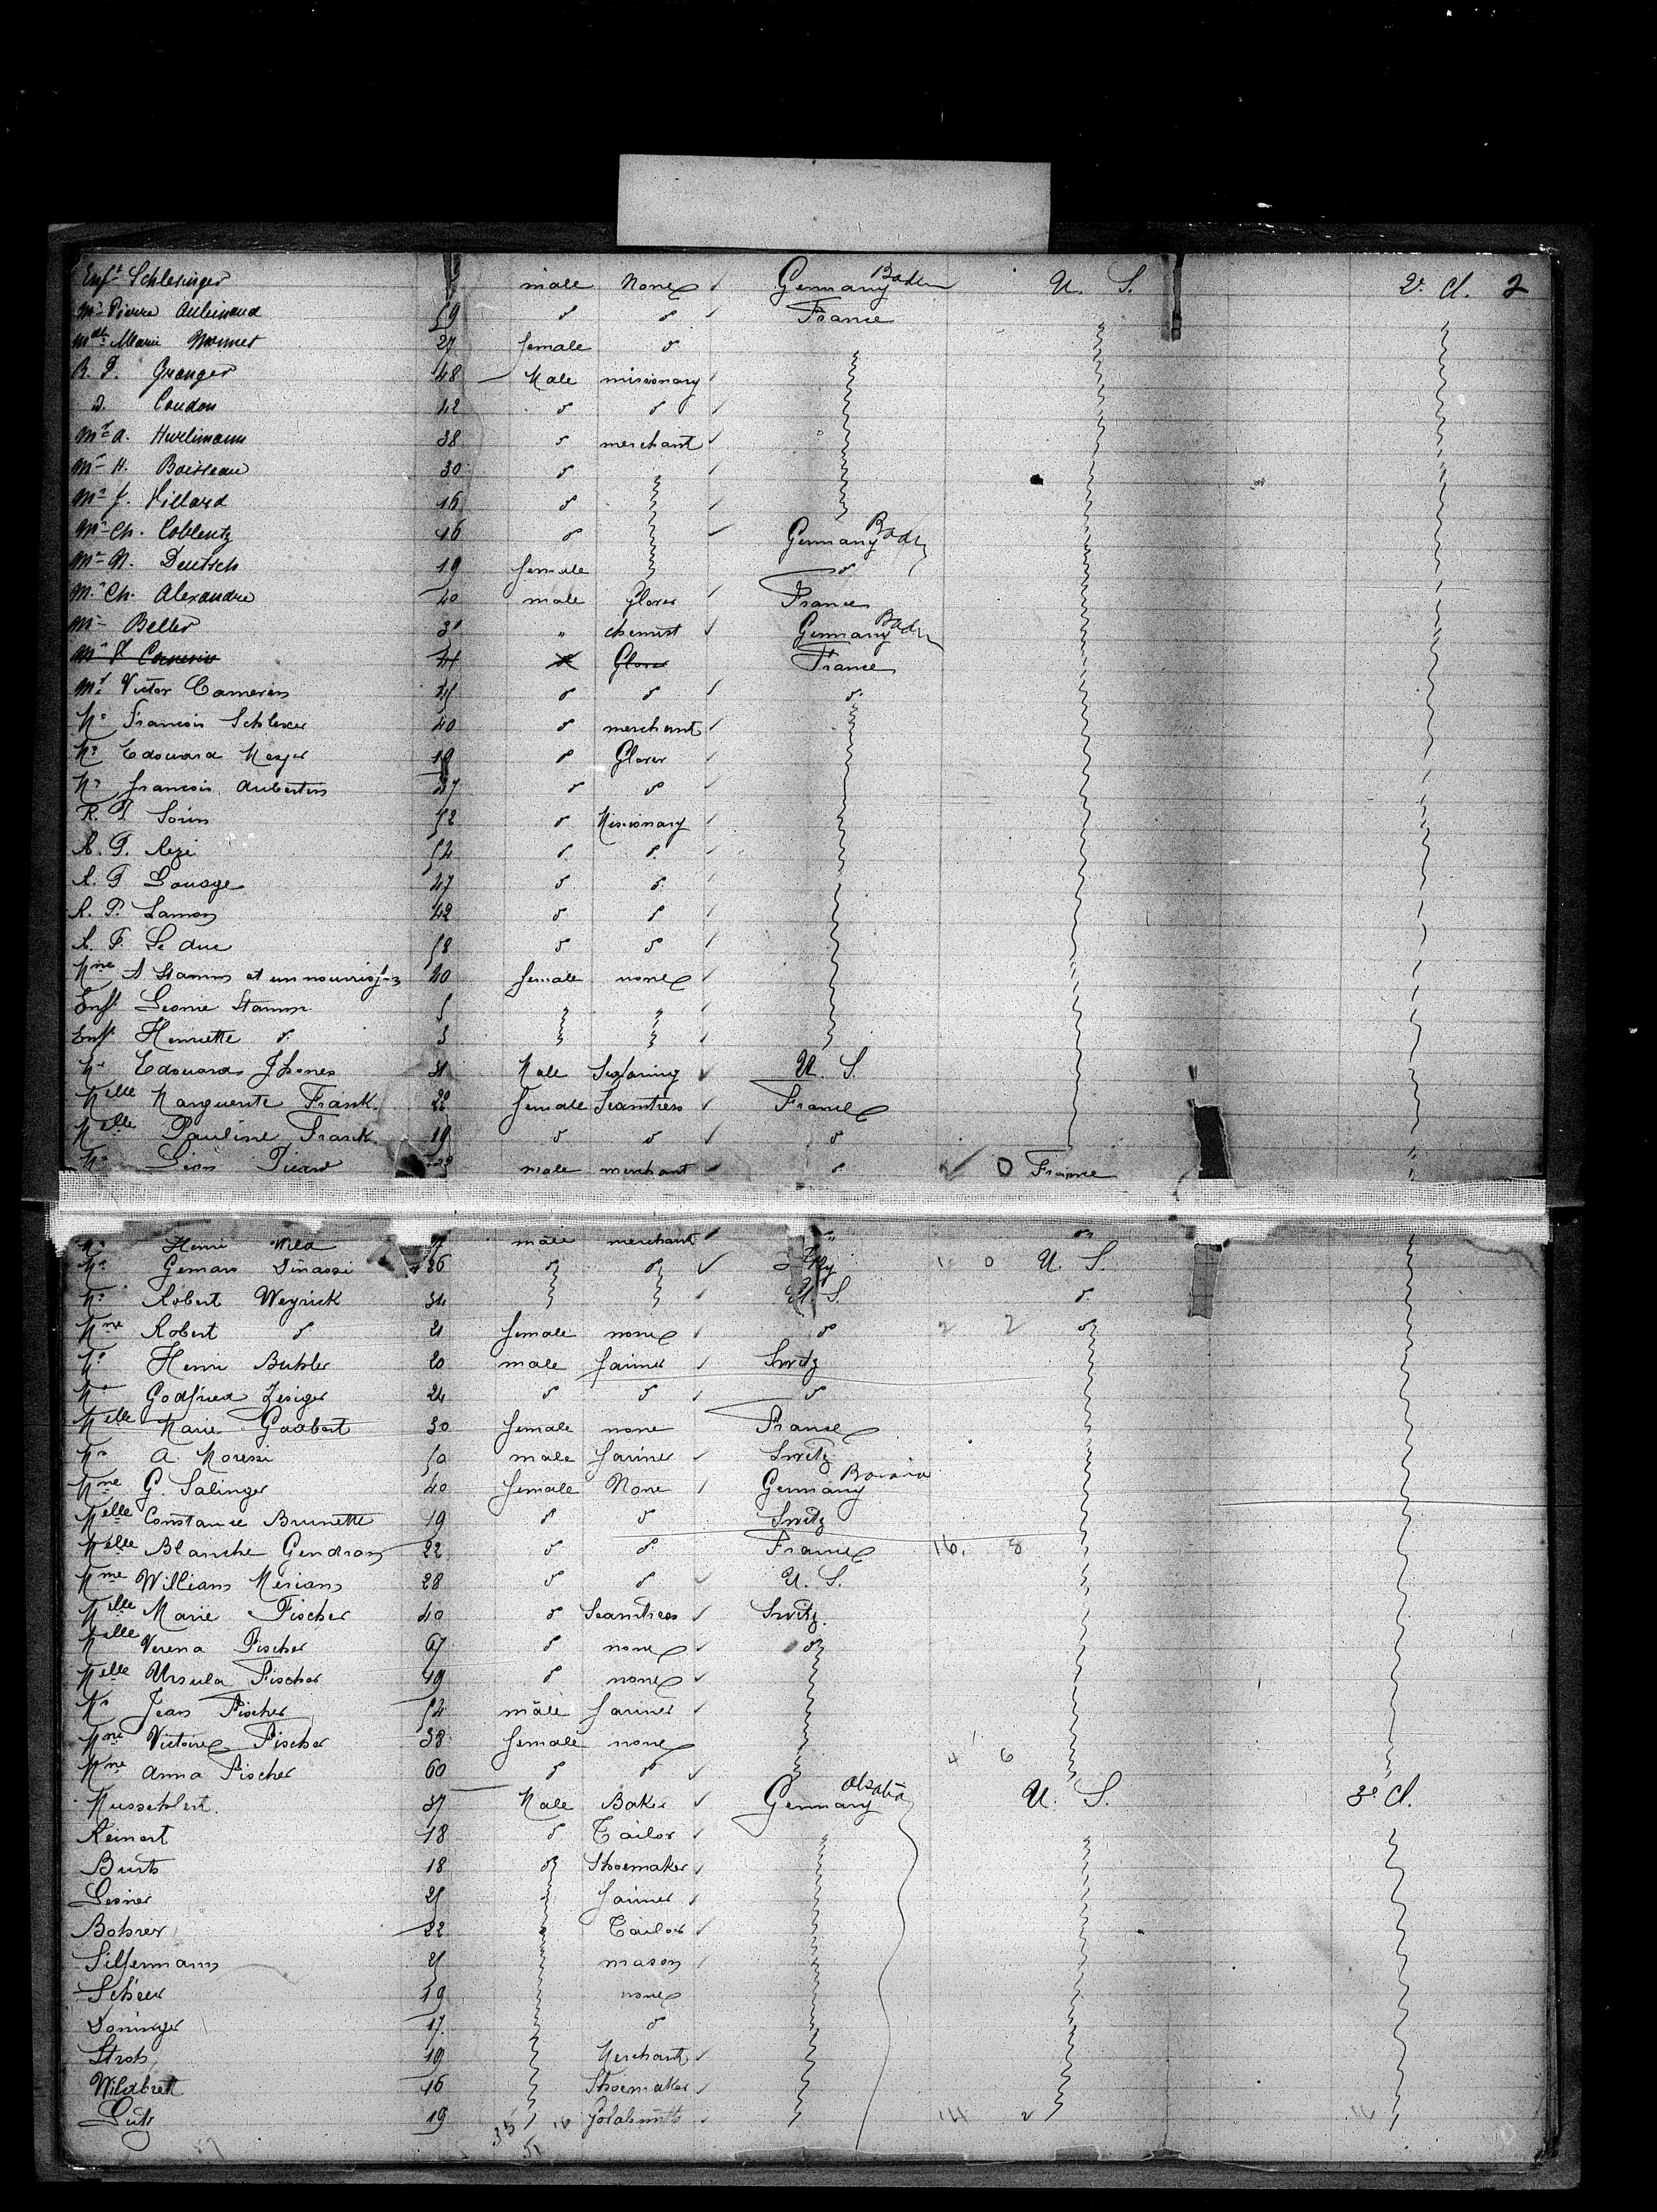 Enft Schlesinger male None Germany Baden U. S. 2e Cl. 2
Mr Pierre 59 d° d° France
Mdlle Marie 27 female d°
R. P. Granger 48 Male missionary
d. Coudon 42 d° d°
Mr A. Hurlimann 38 d° merchant
Mr H. Boisseau 30 d°
Mr J. Hillard 16 d°
Mr Ch. Coblentz 16 d° Germany Baden
Mr N. Deutsch 19 female d°
Mr Ch. Alexandre 40 male Glover France
Mr Beller 30 " chemist Germany Baden
Mr Glover France
Mr Victor Camerin d° d° d°
Mr Francois Schlexer 40 d° merchant
Mr Edouard Meyer 19 d° Glover
Mr Francois Aubertin 27 d° d°
R. P. Sorin 52 d° Missionary
R. P. Rézé 52 d° d°
R. P. Louage 47 d° d°
R. P. Lamon 42 d° d°
R. P. Le duc 58 d° d°
Mme A Stamm et un nourrisson 40 female none
Enft Leonie Stamm 5
Enft Henriette d° 3
Mr Edouard 31 Male U. S.
Melle Marguerite Frank 22 female Seamtress France
Melle Pauline Frank 19 d° d° d°
Mr Leon Picard male merchant d° 0 France
Mr Henri Wild male merchant " d°
Mr Gemars Sinassi 26 d° d° 1 0 U. S.
Mr Robert Weyrick 34 U. S. d°
Mme Robert d° 21 female none d° 2 2 d°
Mr Henri Buhler 20 male farmer Switz
Mr Godfried Zesiger 24 d° d° d°
Melle Marie Godbert 30 female none France
Mr A. Moressi 50 male farmer Switz
Mme G. Salinger 40 female None Germany Bavaria
Melle Constance Brunette 19 d° d° Switz
Melle Blanche Gendron 22 d° d° France 16 8
Mme William Merian 28 d° d° U. S.
Melle Marie Fischer 40 d° Seamtress Switz.
Melle Verena Fischer 67 d° none d°
Melle Ursula Fischer 49 d° none
Mr Jean Fischer 52 male farmer
Mme Victoire Fischer 38 female none
Mme Anna Fischer 60 d° d° 4 6
Musschlert. 37 Male Baker Germany Alsatia U. S. 3e Cl.
Reinert 18 d° Tailor
Burt 18 d° Shoemaker
Lesner 25 farmer
Bohrer 22 Tailor
Silfermann 25 mason
Scheer 19 none
Doninger 17 d°
Stroh 19 Merchant
Wildbrett 16 Shoemaker
Lutz 19 Goldsmith 14 2
35 16
51